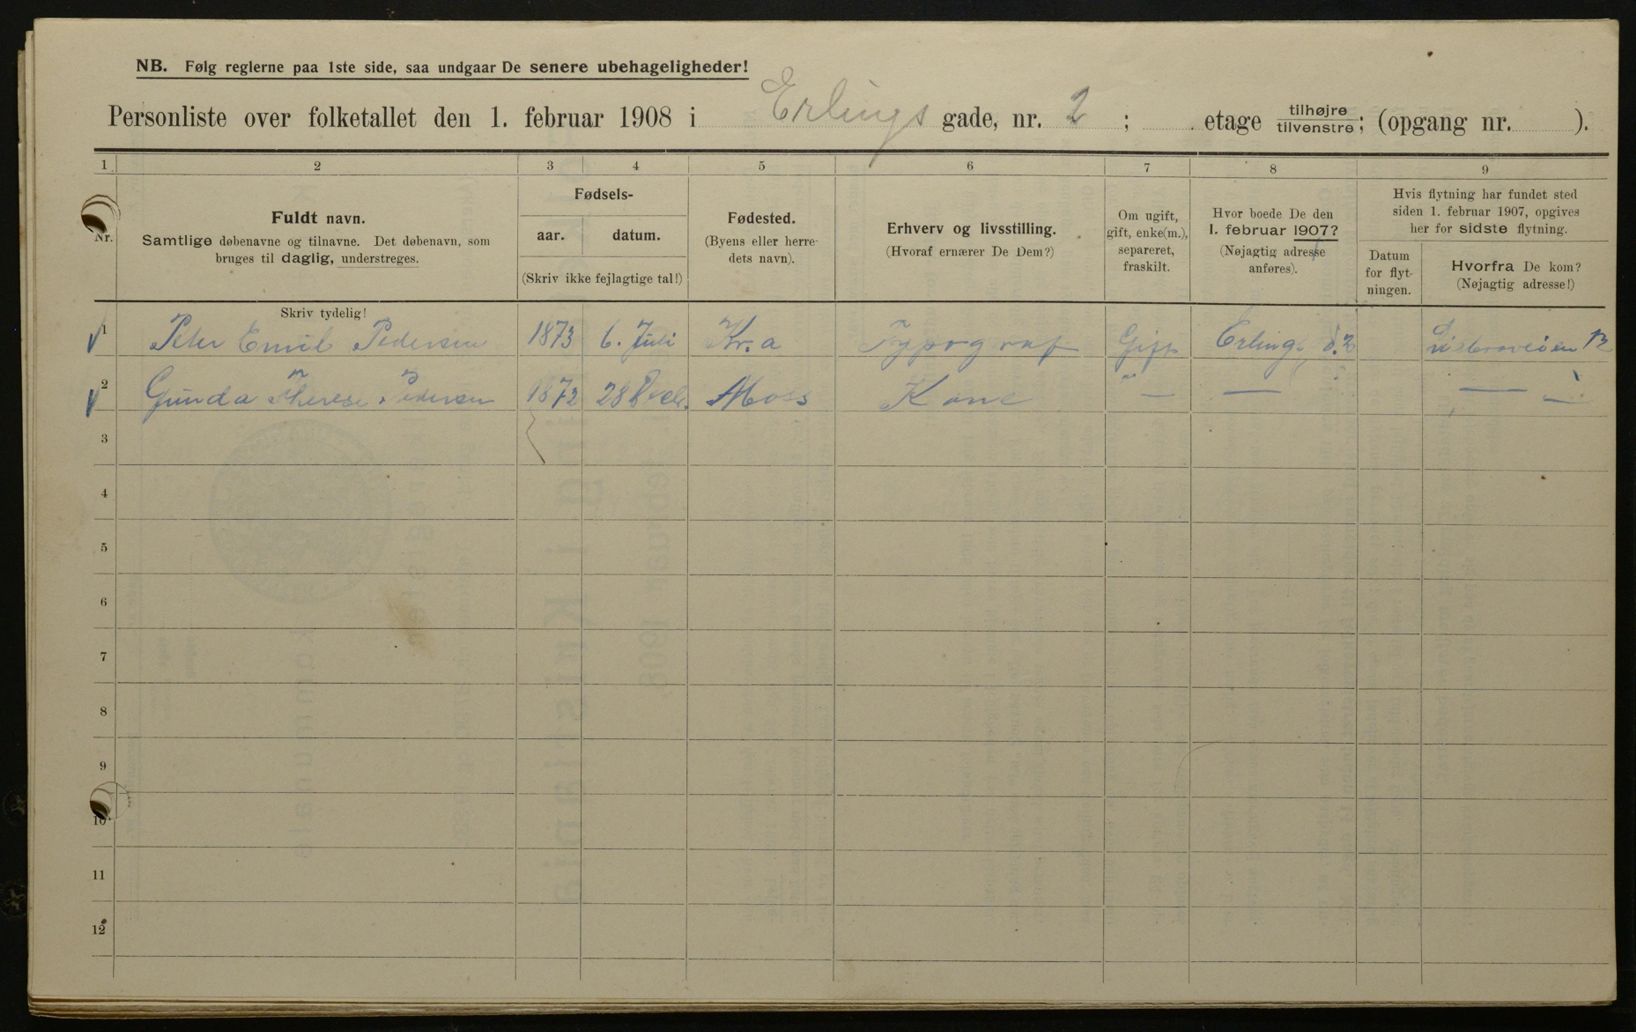 NB. Følg reglerne paa 1ste side, saa undgaar De senere ubehageligheder!
Personliste over folketallet den 1. februar 1908 i Erlings gade, nr. 2 ; etage tilhøjre tilvenstre; (opgang nr. ).
1 2 3 4 5 6 7 8 9
Nr.
Fuldt navn.
Samtlige døbenavne og tilnavne. Det døbenavn, som
bruges til daglig, understreges.
Skriv tydelig!
Fødsels-
aar. datum.
(Skriv ikke fejlagtige tal!)
Fødested.
(Byens eller herre-
dets navn).
Erhverv og livsstilling.
(Hvoraf ernærer De Dem?)
Om ugift,
gift, enke(m.),
separeret,
fraskilt.
Hvor boede De den
1. februar 1907?
(Nøjagtig adresse
anføres).
Hvis flytning har fundet sted
siden 1. februar 1907, opgives
her for sidste flytning.
Datum
for flyt-
ningen.
Hvorfra De kom?
(Nøjagtig adresse!)
1 Peter Emil Pedersen 1873 6. Juli Kr.a Typograf Gift Erlings 2
2 Gunda Therese Pedersen 1872 28 Moss Kone " — —
3
4
5
6
7
8
9
10
11
12